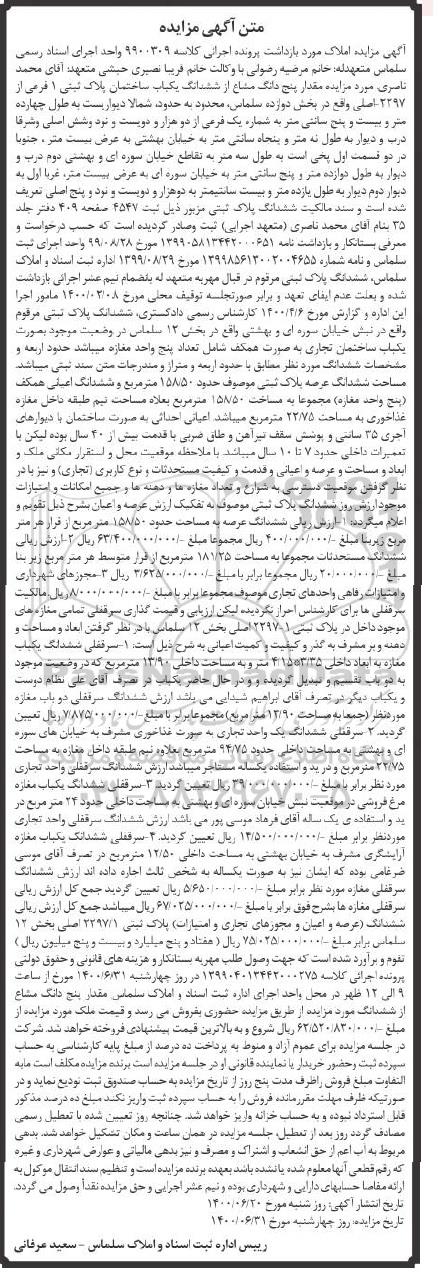 متن آگهی مزایده
آگهی مزایده املاک مورد بازداشت پرونده اجرائی کلاسه ۹۹۰۰۳۰۹ واحد اجرای اسناد رسمی
سلماس متعهدله: خانم مرضیه رضوانی با وکالت خانم فریبا نصیری حبشی متعهد: آقای محمد
ناصری، مورد مزایده مقدار پنج دانگ مشاع از ششدانگ یکباب ساختمان پلاک ثبتی ۱ فرعی از
۲۲۹۷-اصلی واقع در بخش دوازده سلماس، محدود به حدود، شمالا دیواریست به طول چهارده
متر و بیست و پنج سانتی متر به شماره یک فرعی از دو هزار و دویست و نود وشش اصلی وشرقا
درب و دیوار به طول نه متر و پنجاه سانتی متر به خیابان بهشتی به عرض بیست متر ، جنوبا
در دو قسمت اول پخی است به طول سه متر به تقاطع خیابان سوره ای و بهشتی دوم درب و
دیوار به طول دوازده متر و پنج سانتی متر به خیابان سوره ای به عرض بیست متر، غربا اول به
دیوار دوم دیوار به طول یازده متر و بیست سانتیمتر به دوهزار و دویست و نود و پنج اصلی تعریف
شده است و سند مالکیت ششدانگ پلاک ثبتی مزبور ذیل ثبت ۴۵۴۷ صفحه ۴۰۹ دفتر جلد
۳۵ بنام آقای محمد ناصری (متعهد اجرایی) ثبت وصادر گردیده است که حسب درخواست و
معرفی بستانکار و بازداشت نامه ۱۳۹۹۰۵۸۱۳۴۴۲۰۰۰۶۵۱ مورخ ۹۹/۰۸/۲۸ واحد اجرای ثبت
سلماس و نامه شماره ۱۳۹۹۸۵۶۱۳۰۰۲۰۰۴۶۵۵ مورخ ۱۳۹۹/۰۸/۲۹ اداره ثبت اسناد و املاک
سلماس، ششدانگ پلاک ثبتی مرقوم در قبال مهریه متعهد له بانضمام نیم عشر اجرائی بازداشت
شده و بعلت عدم ایفای تعهد و برابر صورتجلسه توقیف محلی مورخ ۱۴۰۰/۰۲/۰۸ مامور اجرا
این اداره و گزارش مورخ ۱۴۰۰/۴/۶ کارشناس رسمی دادگستری، ششدانگ پلاک ثبتی مرقوم
واقع در نبش خیابان سوره ای و بهشتی واقع در بخش ۱۲ سلماس در وضعیت موجود بصورت
یکباب ساختمان تجاری به صورت همکف شامل تعداد پنج واحد مغازه میباشد حدود اربعه و
مشخصات ششدانگ مورد نظر مطابق با حدود اربعه و متراژ و مندرجات متن سند ثبتی میباشد.
مساحت ششدانگ عرصه پلاک ثبتی موصوف حدود ۱۵۸/۵۰ مترمربع و ششدانگ اعیانی همکف
(پنج واحد مغازه) مجموعا به مساحت ۱۵۸/۵۰ مترمربع بعلاوه مساحت نیم طبقه داخل مغازه
غذاخوری به مساحت ۲۲/۷۵ مترمربع میباشد. اعیانی احداثی به صورت ساختمان با دیوارهای
آجری ۳۵ سانتی و پوشش سقف تیرآهن و طاق ضربی با قدمت بیش از ۴۰ سال بوده لیکن با
تعمیرات داخلی حدود ۷ تا ۱۰ سال میباشد. با ملاحظه موقعیت محل و استقرار مکانی ملک و
ابعاد و مساحت و عرصه و اعیانی و قدمت و کیفیت مستحدثات و نوع کاربری (تجاری) و نیز با در
نظر گرفتن موقعیت دسترسی به شوارع و تعداد مغازه ها و دهنه ها و جمیع امکانات و امتیازات
موجود ارزش روز ششدانگ پلاک ثبتی موصوف به تفکیک ارزش عرصه و اعیان بشرح ذیل تقویم و
اعلام میگردد: ۱-ارزش ریالی ششدانگ عرصه به مساحت حدود ۱۵۸/۵۰ متر مربع از قرار هر متر
مربع زیربنا مبلغ -/۴۰۰/۰۰۰/۰۰۰ ریال مجموعا مبلغ -/۶۳/۴۰۰/۰۰۰/۰۰۰ ریال ۲-ارزش ریالی
ششدانگ مستحدثات مجموعا به مساحت ۱۸۱/۲۵ مترمربع از قرار متوسط هر متر مربع زیر بنا
مبلغ -/۲۰/۰۰۰/۰۰۰ ریال مجموعا برابر با مبلغ -/۳/۶۲۵/۰۰۰/۰۰۰ ریال ۳-مجوزهای شهرداری
و امتیازات رفاهی واحدهای تجاری موصوف مجموعا برابر با مبلغ -/۸/۰۰۰/۰۰۰/۰۰۰ ریال. مالکیت
سرقفلی ها برای کارشناس احراز نگردیده لیکن ارزیابی و قیمت گذاری سرقفلی تمامی مغازه های
موجود داخل در پلاک ثبتی ۱-۲۲۹۷ اصلی بخش ۱۲ سلماس با در نظر گرفتن ابعاد و مساحت و
دهنه و بر مشرف به گذر و کیفیت و کمیت اعیانی به شرح ذیل است: ۱-سرقفلی ششدانگ یکباب
مغازه به ابعاد داخلی ۳/۳۵*۴۱۵ متر و به مساحت داخلی ۱۳/۹۰ مترمربع که در وضعیت موجود
به دو باب تقسیم و تبدیل گردیده و و در حال حاضر یکباب در تصرف آقای علی نظام دوست
و یکباب دیگر در تصرف آقای ابراهیم شیدایی می باشد ارزش ششدانگ سرقفلی دو باب مغازه
موردنظر (جمعا به مساحت ۱۲/۹۰ متر مربع) مجموعا برابر با مبلغ -/۷/۸۷۵/۰۰۰/۰۰۰ ریال تعیین
گردید. ۲-سرقفلی ششدانگ یک واحد تجاری به صورت غذاخوری مشرف به خیابان های سوره
ای و بهشتی به مساحت داخلی حدود ۹۴/۷۵ مترمربع بعلاوه نیم طبقه داخل مغازه به مساحت
۲۲/۷۵ مترمربع و در ید و استفاده یکساله مستاجر میباشد ارزش ششدانگ سرقفلی واحد تجاری
مورد نظر برابر با مبلغ ریال تعیین گردید. ۳-سرقفلی ششدانگ یکباب مغازه
مرغ فروشی در موقعیت نبش خیابان سوره ای و بهشتی به مساحت داخلی حدود ۲۴ متر مربع در
ید و استفاده ی یک ساله آقای فرهاد موسی پور می باشد ارزش ششدانگ سرقفلی واحد تجاری
موردنظر برابر مبلغ -/۱۴/۵۰۰/۰۰۰/۰۰۰ ریال تعیین گردید. ۴-سرقفلی ششدانگ یکباب مغازه
آرایشگری مشرف به خیابان بهشتی به مساحت داخلی ۱۲/۵۰ مترمربع در تصرف آقای موسی
ضرغامی بوده که ایشان نیز به صورت یکساله به شخص ثالث اجاره داده اند ارزش ششدانگ
سرقفلی مغازه مورد نظر برابر مبلغ -/۵/۶۵۰/۰۰۰/۰۰۰ ریال تعیین گردید جمع کل ارزش ریالی
سرقفلی مغازه ها بشرح فوق برابر با مبلغ -/۶۷/۰۲۵/۰۰۰/۰۰۰ ریال میباشد جمع کل ارزش ریالی
ششدانگ (عرصه و اعیان و مجوزهای تجاری و امتیازات) پلاک ثبتی ۲۲۹۷/۱ اصلی بخش ۱۲
سلماس برابر مبلغ -/۷۵/۰۲۵/۰۰۰/۰۰۰ ریال ( هفتاد و پنج میلیارد و بیست و پنج میلیون ریال )
تقوم و برآورد شده است که جهت وصول طلب مهریه بستانکار و هزینه های قانونی و حقوق دولتی
پرونده اجرائی کلاسه ۱۳۹۹۰۴۰۱۳۴۴۲۰۰۰۲۷۵ در روز چهارشنبه ۱۴۰۰/۶/۳۱ مورخ از ساعت
۹ الی ۱۲ ظهر در محل واحد اجرای اداره ثبت اسناد و املاک سلماس مقدار پنج دانگ مشاع
از ششدانگ مورد مزایده از طریق مزایده حضوری بفروش می رسد و قیمت ملک مورد مزایده از
مبلغ -/۶۲/۵۲۰/۸۳۰/۰۰۰ ریال شروع و به بالاترین قیمت پیشنهادی فروخته خواهد شد. شرکت
در جلسه مزایده برای عموم آزاد و منوط به پرداخت ده درصد از مبلغ پایه کارشناسی به حساب
سپرده ثبت وحضور خریدار یا نماینده قانونی او در جلسه مزایده است برنده مزایده مکلف است مابه
التفاوت مبلغ فروش راظرف مدت پنج روز از تاریخ مزایده به حساب صندوق ثبت تودیع نماید و در
صورتیکه ظرف مهلت مقرر مانده فروش را به حساب سپرده ثبت واریز نکنند مبلغ ده درصد مذکور
قابل استرداد نبوده و به حساب خزانه واریز خواهد شد. چنانچه روز تعیین شده با تعطیل رسمی
مصادف گردد روز بعد از تعطیل، جلسه مزایده در همان ساعت و مکان تشکیل خواهد شد. بدهی
مربوط به آب اعم از حق انشعاب و اشتراک و مصرف و نیز بدهی مالیاتی و عوارض شهرداری و غیره
که رقم قطعی آنها معلوم شده یا نشده باشد بعهده برنده مزایده است و تنظیم سند انتقال موکول به
ارائه مفاصا حسابهای دارایی و شهرداری بوده و نیم عشر اجرایی و حق مزایده نقداً وصول می گردد.
تاریخ انتشار آگهی: روز شنبه مورخ ۱۴۰۰/۰۶/۲۰
تاریخ مزایده: روز چهارشنبه مورخ ۱۴۰۰/۰۶/۳۱
رییس اداره ثبت اسناد و املاک سلماس - سعید عرفانی